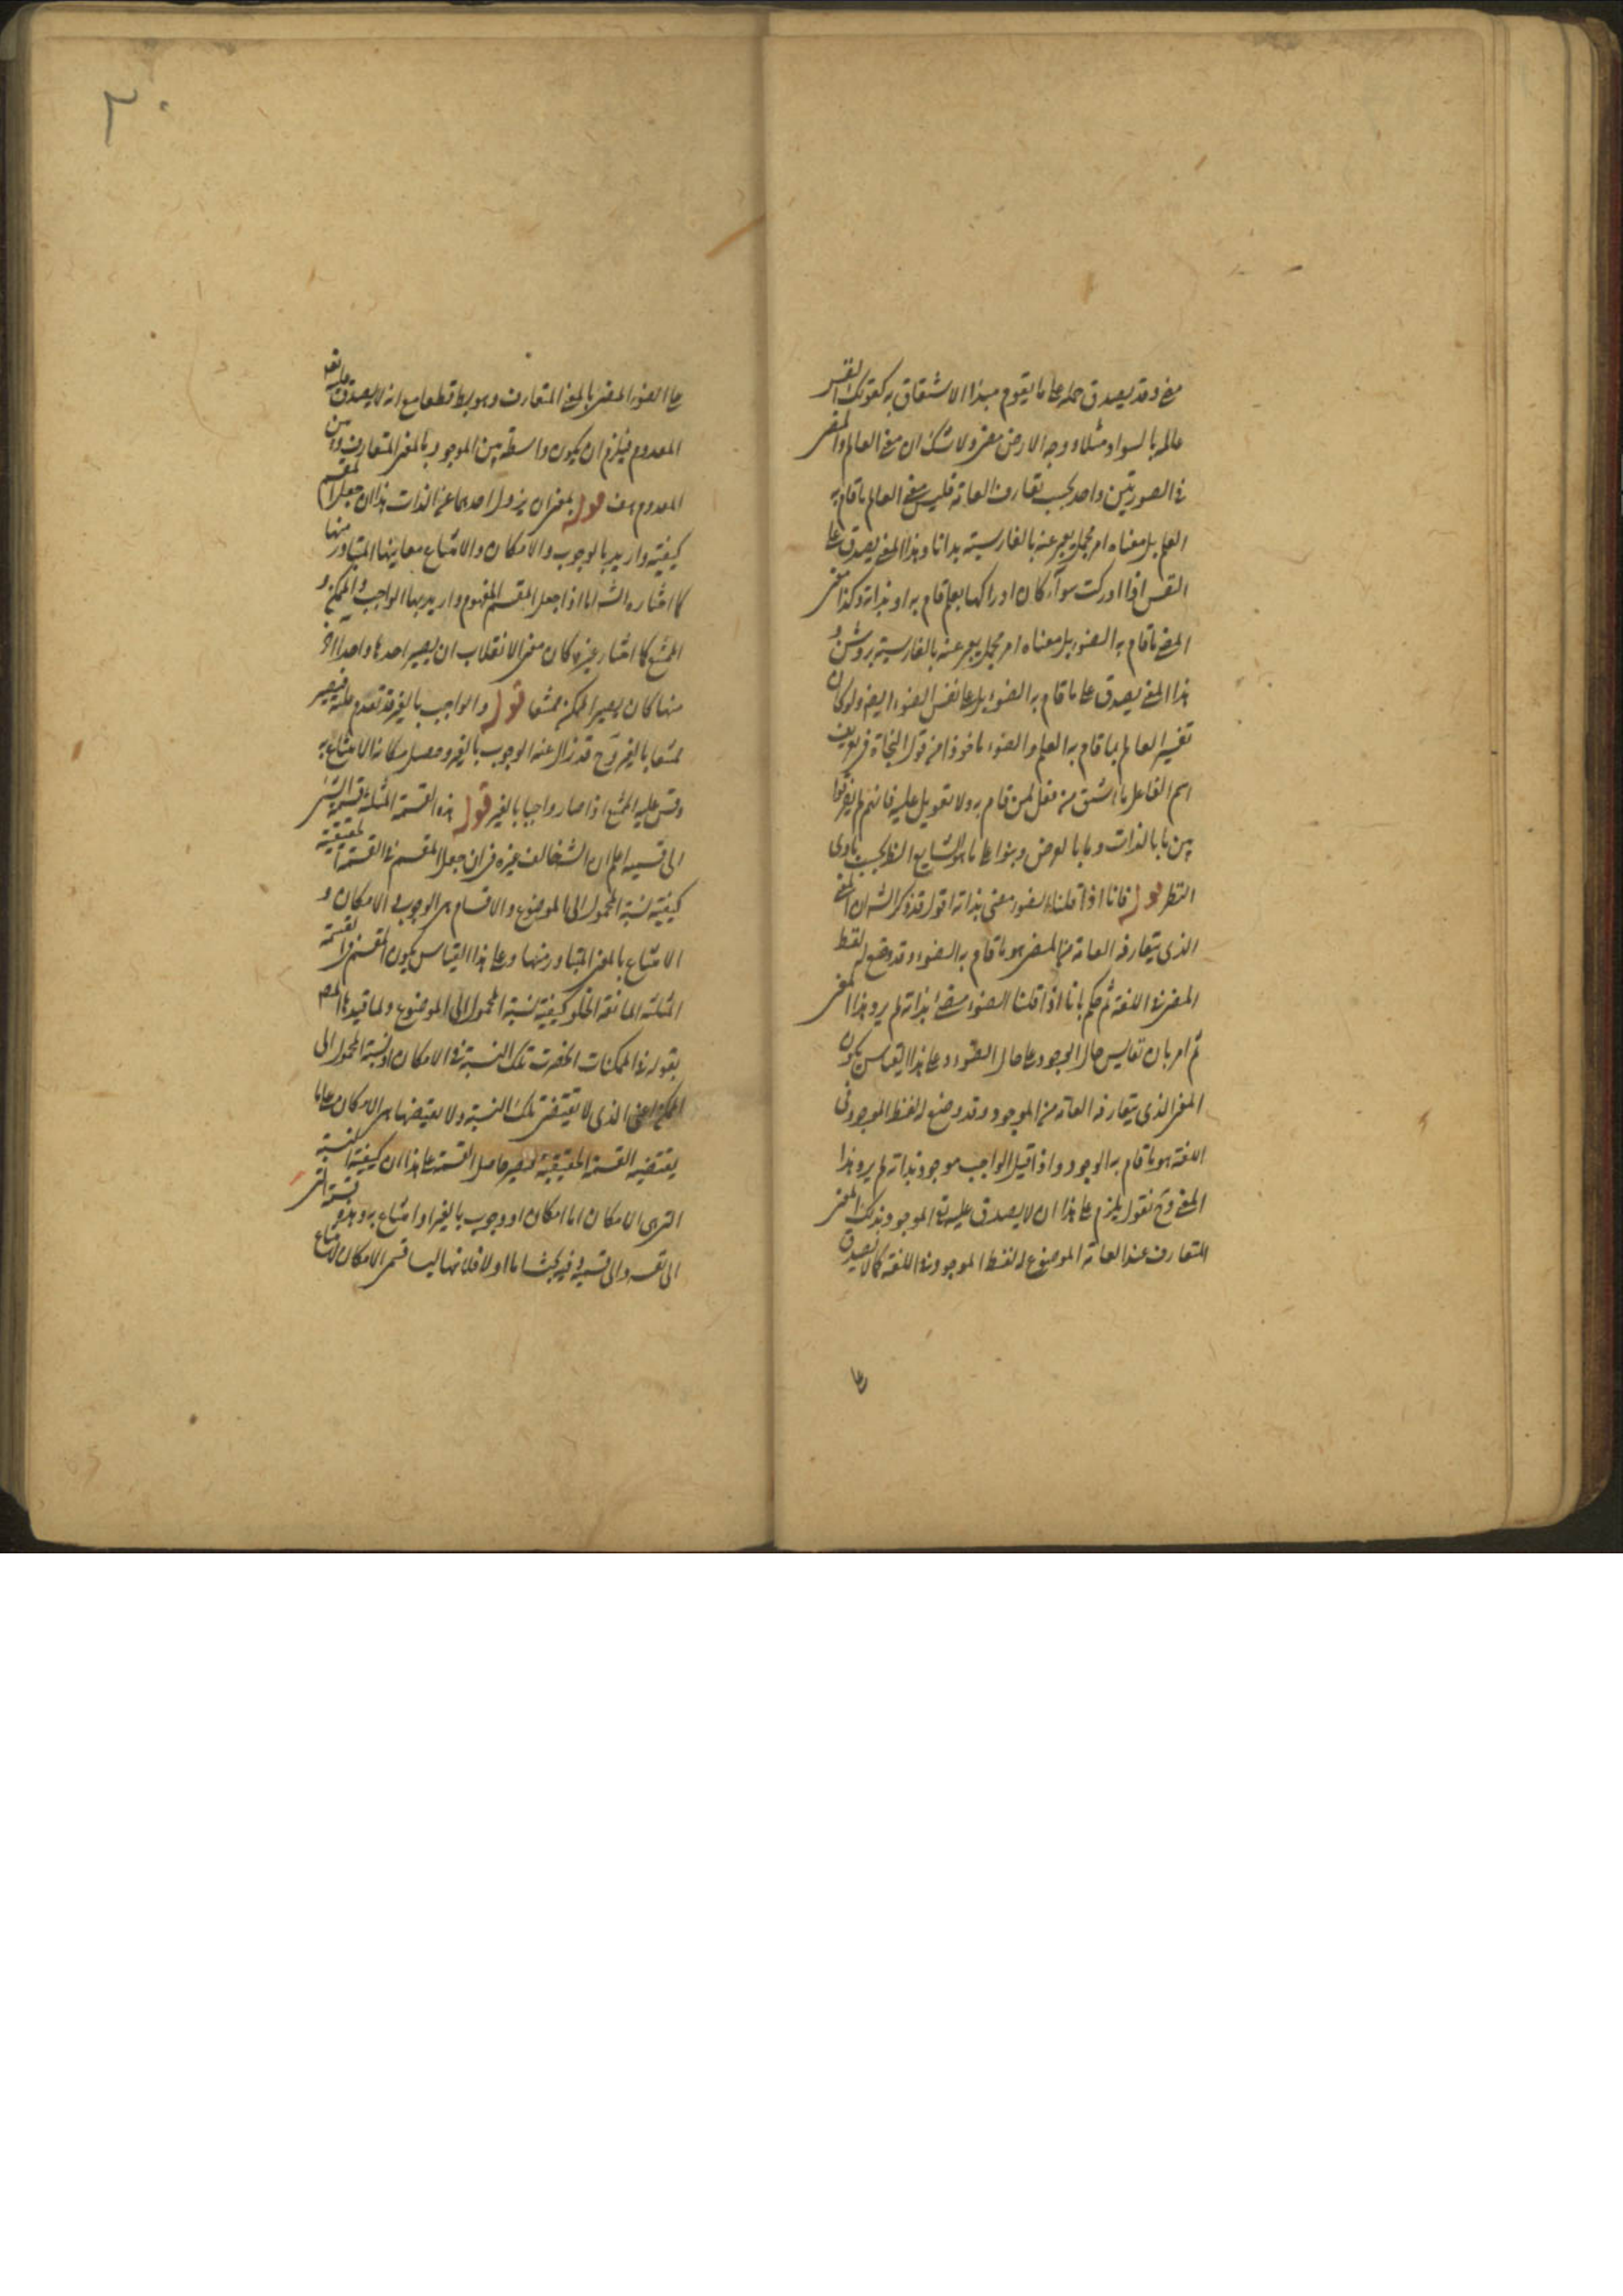 مضئ وقد يصدق حمله على ما يقوم مبدا الاشتقاق به كقولك النفس
عالمه بالسواد مثلا ووجه الارض مضئ ولا شك ان معنى العالم والمضئ
فى الصورتين واحد بحسب تعارف العامة فليس معنى العالم ما قام به
العلم بل معناه امر مجمل يعبر عنه بالفارسية بدانا وهذا المعنى يصدق على
النفس اذا ادركت سوآء كان ادراكها بعلم قام به او بذاته وكذا معنى
المضئ ما قام به الضوء بل معناه امر مجمل يعبر عنه بالفارسية بروشن و
هذا المعنى يصدق على ما قام به الضوء بل على نفس الضوء ايضا ولو كان
تفسير العالم بما قام به العلم والضوء ماخوذا من قول النحاة فى تعريف
اسم الفاعل ما اشتق من فعل لمن قام به ولا تعويل عليه فانهم لم يفرقوا
بين ما بالذات وما بالعرض وبنوا على ما هو الشايع الظ بحسب بادى
النظر قوله فانا اذا قلنا الضوء مضئ بذاته اقول قد ذكر الش ان المعنى
الذى يتعارفه العامة من المضئ هو ما قام به الضوء وقد وضع له لفظ
المضئ فى اللغة ثم حكم بانا اذا قلنا الضوء مضئ بذاته لم يرد هذا المعنى
ثم امر بان تقايس حال الوجود على حال الضوء وعلى هذا القياس يكون
المعنى الذى يتعارفه العامة من الموجود وقد وضع له لفظ الموجود فى
اللغة هو ما قام به الوجود واذا قيل الواجب موجود بذاته لم يرد هذا
المعنى وح نقول يلزم على هذا ان لا يصدق عليه تع الموجود بذلك المعنى
المتعارف عند العامة الموضوع له لفظ الموجود فى اللغة كما لا يصدق
على
٣٠
على الضوء المضئ بالمعنى المتعارف وهو بط قطعا مع انه لا يصدق عليه تع
المعدوم فيلزم ان يكون واسطة بين الموجود بالمعنى المتعارف وبين
المعدوم هف قوله بمعنى ان يزول احدهما عن الذات هذا ان جعل المقسم
كيفية واريد بالوجوب والامكان والامتناع معانيها المتبادر منها
كما اختاره الش اما اذا جعل المقسم المفهوم واريد بها الواجب والممكن و
الممتنع كما اختار غيره كان معنى الانقلاب ان يصير احدها واحدا اخر
منها كان يصير الممكن ممتنعا قوله والواجب بالغير قد تعدم علته فيصير
ممتنعا بالغير وح قد زال عنه الوجوب بالغير وحصل مكانه الامتناع به
وقس عليه الممتنع اذا صار واجبا بالغير قوله هذه القسمة المثلثة قسمة الشئ
الى قسميه اعلم ان الش خالف غيره فى ان جعل المقسم فى القسمة الحقيقية
كيفية نسبة المحمول الى الموضوع والاقسام هى الوجوب والامكان و
الامتناع بالمعنى المتبادر منها وعلى هذا القياس يكون المقسم فى القسمة
المثلثة المانعة الخلو كيفية نسبة المحمول الى الموضوع ولما قيدها المص
بقوله فى الممكنات انحصرت تلك النسبة فى الامكان او نسبة المحمول الى
الممكن اعنى الذى لا يقتضى تلك النسبة ولا نقيضها هى الامكان على ما
يقتضيه القسمة الحقيقية فيصير حاصل القسمة على هذا ان كيفية النسبة
التى هى الامكان اما امكان او وجوب بالغير او امتناع به وهذه قسمة الشئ
الى نفسه والى قسيميه وفيه بحث اما اولا فلانها ليسا قسمى الامكان لامتناع